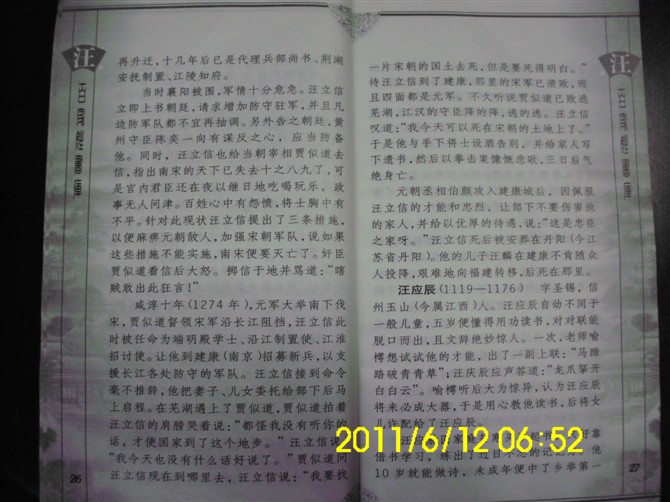 汪
再升迁，十几年后已是代理兵部尚书、荆湖
安抚制置、江陵知府。
当时襄阳被围，军情十分危急。汪立信
立即上书朝廷，请求增加防守驻军，并且凡
边防军队都不宜再抽调。另外沓之朝廷，黄
州守臣陈奕一向有谋反之心，应当防备
他。同时，汪立信也给当朝宰相贾似道去
信，指出南宋的天下已失去十之八九了，可
是宫内君臣还在夜以继日地吃喝玩乐，政
事无人问津。百姓心中有怨愤，将士胸中有
不平。针对此现状汪立信提出了三条措施，
以便麻痹元朝敌人，加强宋朝军队，说如果
这些措施不能实施，南宋便要灭亡了。奸臣
贾似道看信后大怒。掷信于地并骂道：“瞎
贼敢出此狂言！”
咸淳十年（1274年），元军大举南下伐
宋，贾似道督领宋军沿长江阻挡，汪立信此
时被任命为端明殿学士、沿江制置使、江淮
招讨使。让他到建康（南京）招募新兵，以支
援长江各处防守的军队。汪立信接到命令
毫不推辞，他把妻子、儿女委托给部下后马
上启程。在芜湖遇上了贾似道，贾似道拍着
汪立信的肩膀哭着说：“都怪我没有听你的
话，才使国家到了这个地步。”汪立信说：
“我今天也没有什么话好说了。”贾似道问
汪立信现在到哪里去，汪立信说：“我要找
26
汪
一片宋朝的国土去死，但是要死得明白。”
待汪立信到了建康，那里的宋军已溃败，而
且四面都是元军。不久听说贾似道已败逃
芜湖，江汉的守臣降的降，逃的逃。汪立信
叹道：“我今天可以死在宋朝的土地上了。”
于是他与手下将士设酒告别，并给家人写
下遗书，然后以拳击案慷慨悲歌，三日后气
绝身亡。
元朝丞相伯颜攻入建康城后，因佩服
汪立信的才能和忠烈，让部下不要伤害他
的家人，并给以优厚的待遇，说：“这是忠臣
之家呀。”汪立信死后被安葬在丹阳（今江
苏省丹阳）。他的儿子汪麟在建康不肯随众
人投降，艰难地向福建转移，后死在那里。
汪应辰（1119—1176） 字圣锡，信
州玉山（今属江西）人。汪应辰自幼不同于
一般儿童，五岁便懂得用功读书，对对联能
脱口而出，且文辞绝妙惊人。一次，老师喻
樗想试试他的才能，出了一副上联：“马蹄
踏破青青草”；汪庆辰应声答道：“龙爪拏开
白白云”。喻樗听后大为惊异，认为汪应辰
将来必成大器，于是用心教他读书，后将女
儿许配给了汪应辰。
靠
借书学习，练出了过目不忘的记
10岁就能做诗，未成年便中了乡举第一
27
2011/6/12 06:52